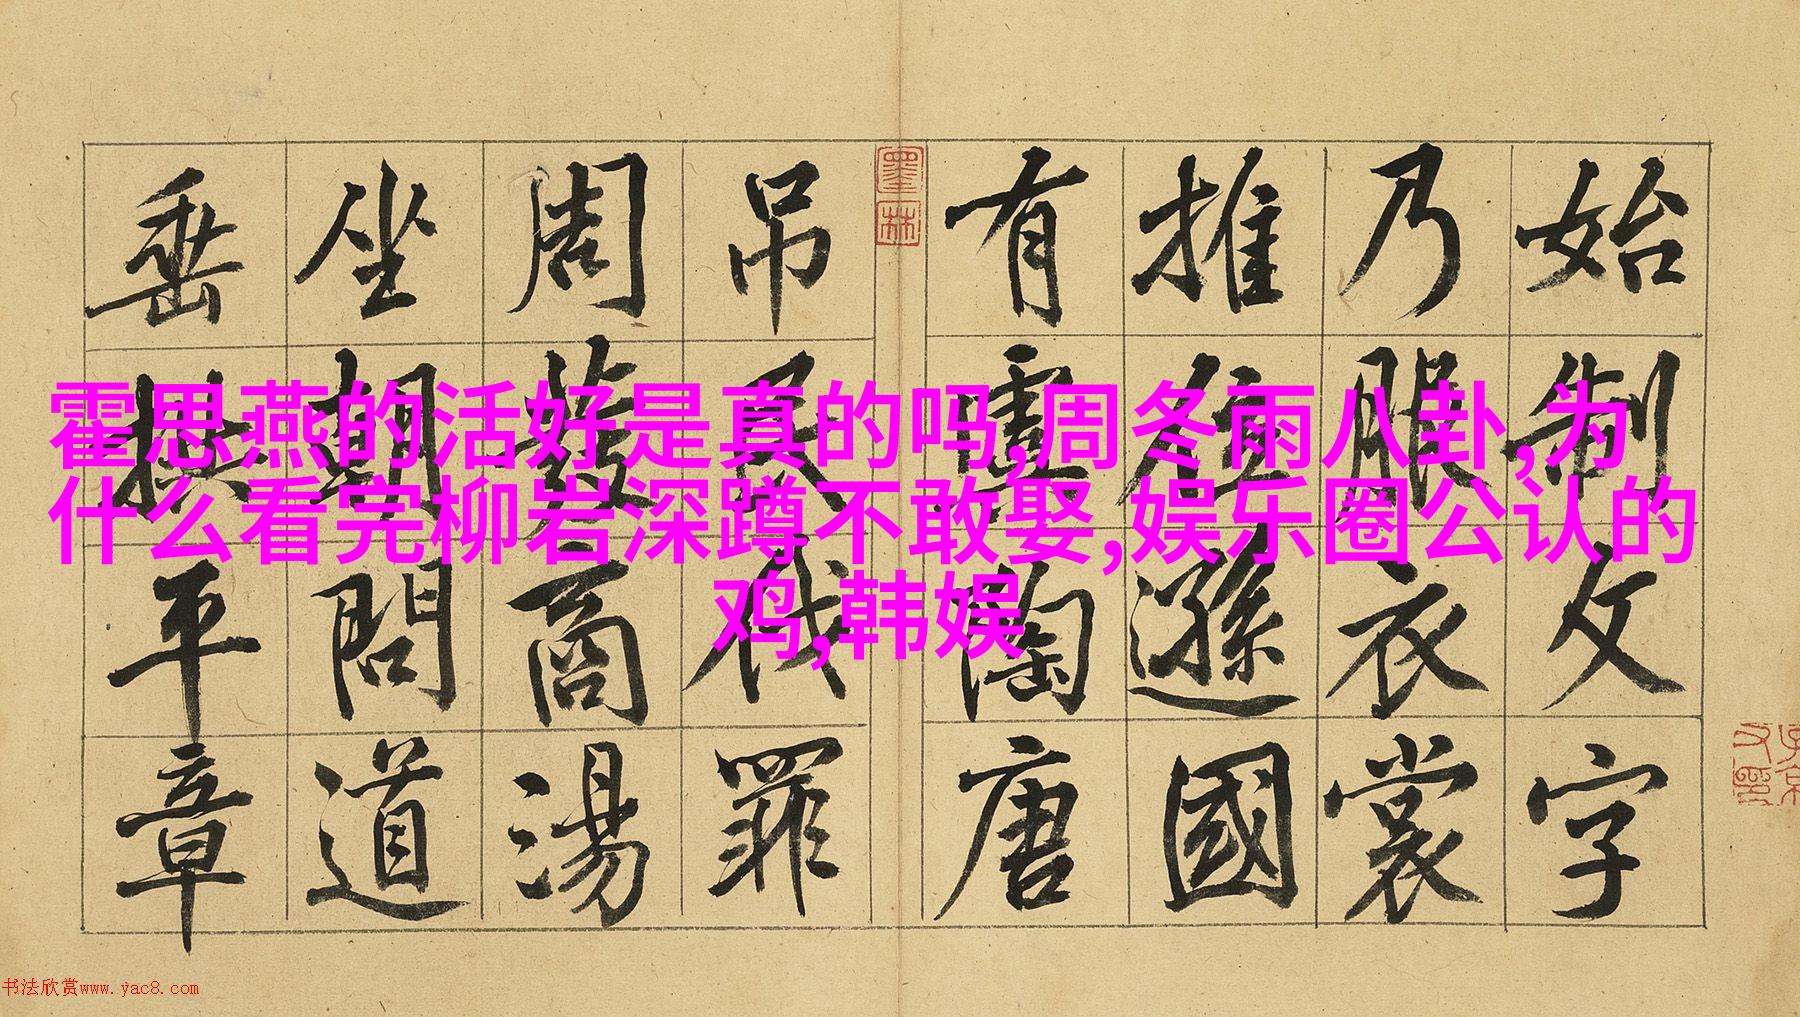 霍思燕的活好是真的吗,周冬雨八卦,为
什么看完柳岩深蹲不敢娶,娱乐圈公认的
鸡,韩娱
始制文字
乃服衣裳
推位遜國
有虞陶唐
吊民伐罪
周發商湯
坐朝問道
垂拱平章
墨林
书法欣赏www.yac8.com